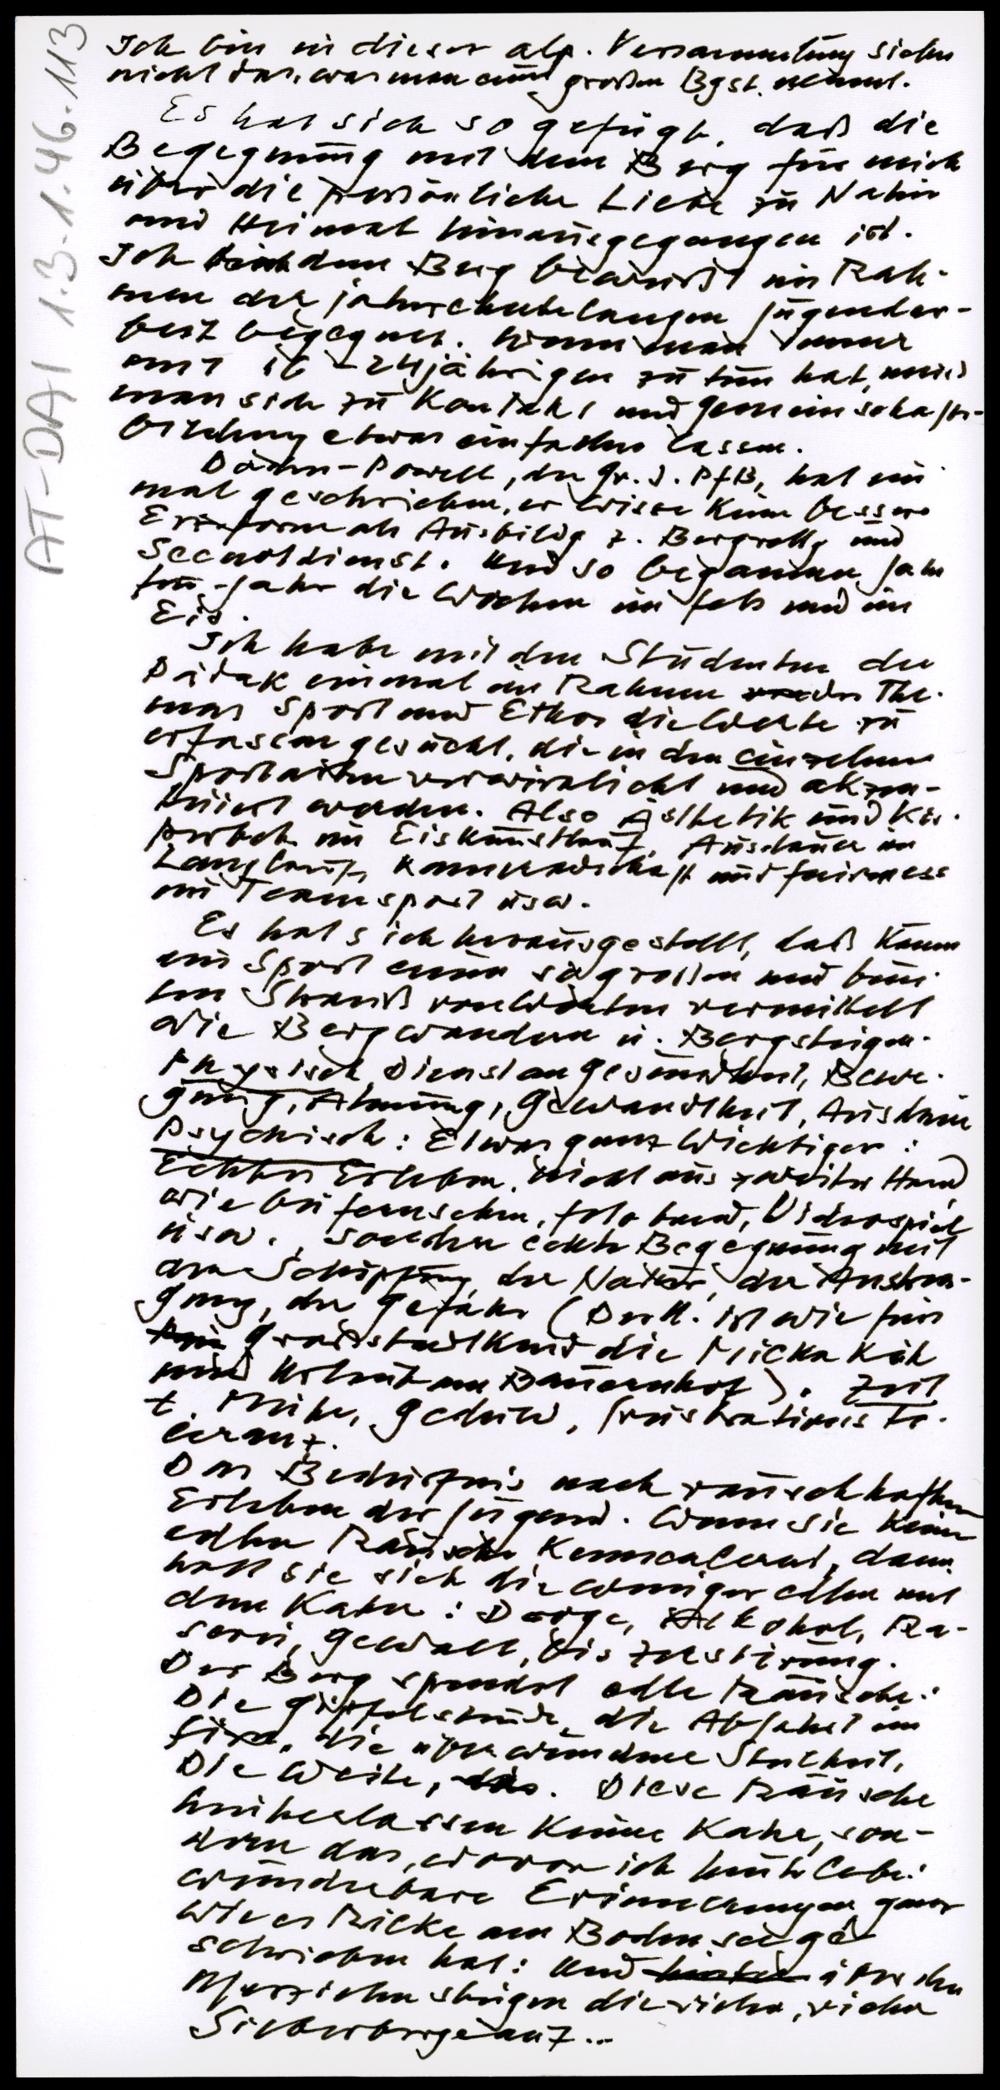 AT-DAI 1.3-1.46.113
Ich bin in dieser alp. Versammlung sicher
nicht das, was man einen großen Bgst. nennt.
Es hat sich so gefügt, daß die
Begegnung mit dem Berg für mich
über die persönliche Liebe zu Natur
und Heimat hinausgegangen ist.
Ich bin dem Berg bewußt im Rah-
men der jahrzehntelangen Jugendar-
beit begegnet. Wenn man immer
mit 16-24jährigen zu tun hat, muß
man sich zu Kontakt und Gemeinschafts-
bildung etwas einfallen lassen.
Baden-Powell, der Gr. d. PfB, hat ein
mal geschrieben, er wisse keine bessere
Erz.form als Ausbildg z. Bergrettg und
Seenotdienst. Und so begannen Jahr
für Jahr die Wochen im Fels und im
Eis.
Ich habe mit den Studenten der
Pädak einmal im Rahmen des The-
mas Sport und Ethos die Werte zu
erfassen gesucht, die in den einzelnen
Sportarten verwirklicht und akzen-
tuiert werden. Also Ästhetik und Kör-
perbeh. im Eiskunstlauf, Ausdauer im
Langlauf, Kameradschaft und Fairness
im Teamsport usw.
Es hat sich herausgestellt, daß kaum
ein Sport einen so großen und bun-
ten Strauß von Werten vermittelt
wie Bergwandern u. Bergsteigen.
Physisch Dienst an Gesundheit, Bewe-
gung, Atmung, Gewandtheit, Ausdauer
Psychisch: Etwas ganz Wichtiges:
Echtes Erleben. Nicht aus zweiter Hand
wie bei Fernsehen, Fotoband, Videospiel
usw., sondern echte Begegnung mit
der Schöpfung, der Natur, der Anstren-
gung, der Gefahr (Das ist wie fürs
Großstadtkind die Milka Kuh
und Urlaub am Bauernhof). Zeit
Mühe, Geduld, Frustrationsto-
leranz.
Das Bedürfnis nach rauschhaftem
Erleben der Jugend. Wenn sie keine
edlen Räusche kennenlernt, dann
holt sie sich die weniger edlen mit
dem Kater: Droge, Alkohol, Ra-
serei, Gewalt, bis Zerstörung.
Der Berg spendet edle Räusche:
Die Gipfelstunde, die Abfahrt im
Firn, die überwundene Steilheit,
Die Weite, . Diese Räusche
hinterlassen keine Kater, son-
dern das, wovon ich heute lebe:
wunderbare Erinnerungen ganz
wie es Rilke am Bodensee ge-
schrieben hat: Und über den
Pfirsichen steigen die vielen, vielen
Silberberge auf...